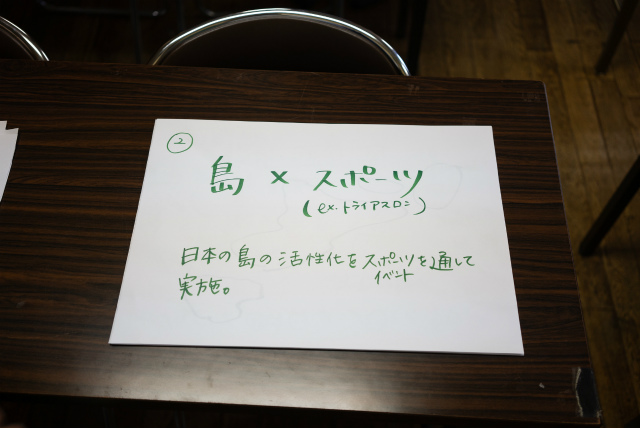 ②
島 × スポーツ
(ex. トライアスロン)
日本の島の活性化をスポーツを通して
イベント
実施。